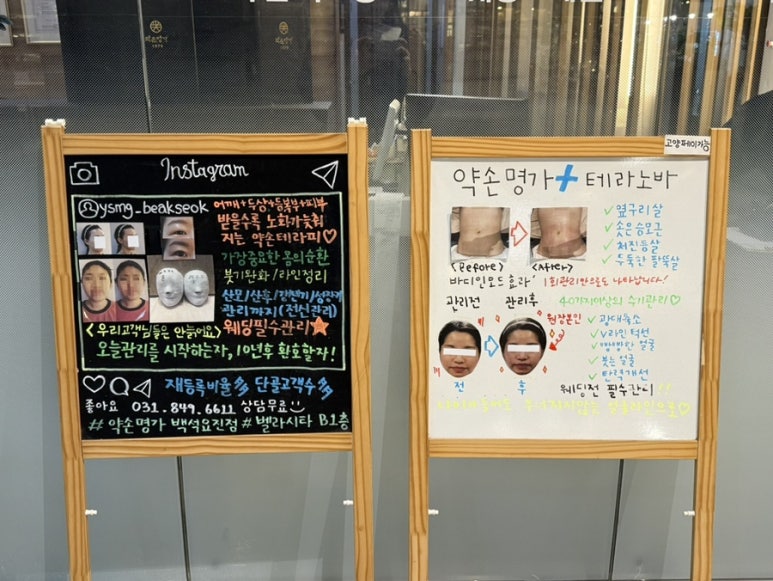 Instagram
@ysmg_beakseok
어깨+두상+등복부+피부
받을수록 노화가늦춰
지는 약손테라피♡
가장중요한 몸의순환
붓기완화/라인정리
관리까지(전신관리)
<우리고객님들은 안늙어요>
웨딩필수관리
오늘관리를 시작하는자, 10년후 환호할자!
재등록비율多 단골고객수多
좋아요 031.849.6611 상담무료
#약손명가 백석요진점 #벨라시타 B1층
고양페이가능
약손명가+테라노바
<Before> <After>
바디인모드효과' 1회관리만으로도 나타납니다!
관리전 관리후
✓옆구리살
✓솟은승모근
✓처진등살
✓두둑한 팔뚝살
40가지이상의 수기관리♡
원장본인
전 후
✓광대축소
✓V라인 턱선
✓빵빵한 얼굴
✓붓는얼굴
✓탄력개선
웨딩전 필수관리!!